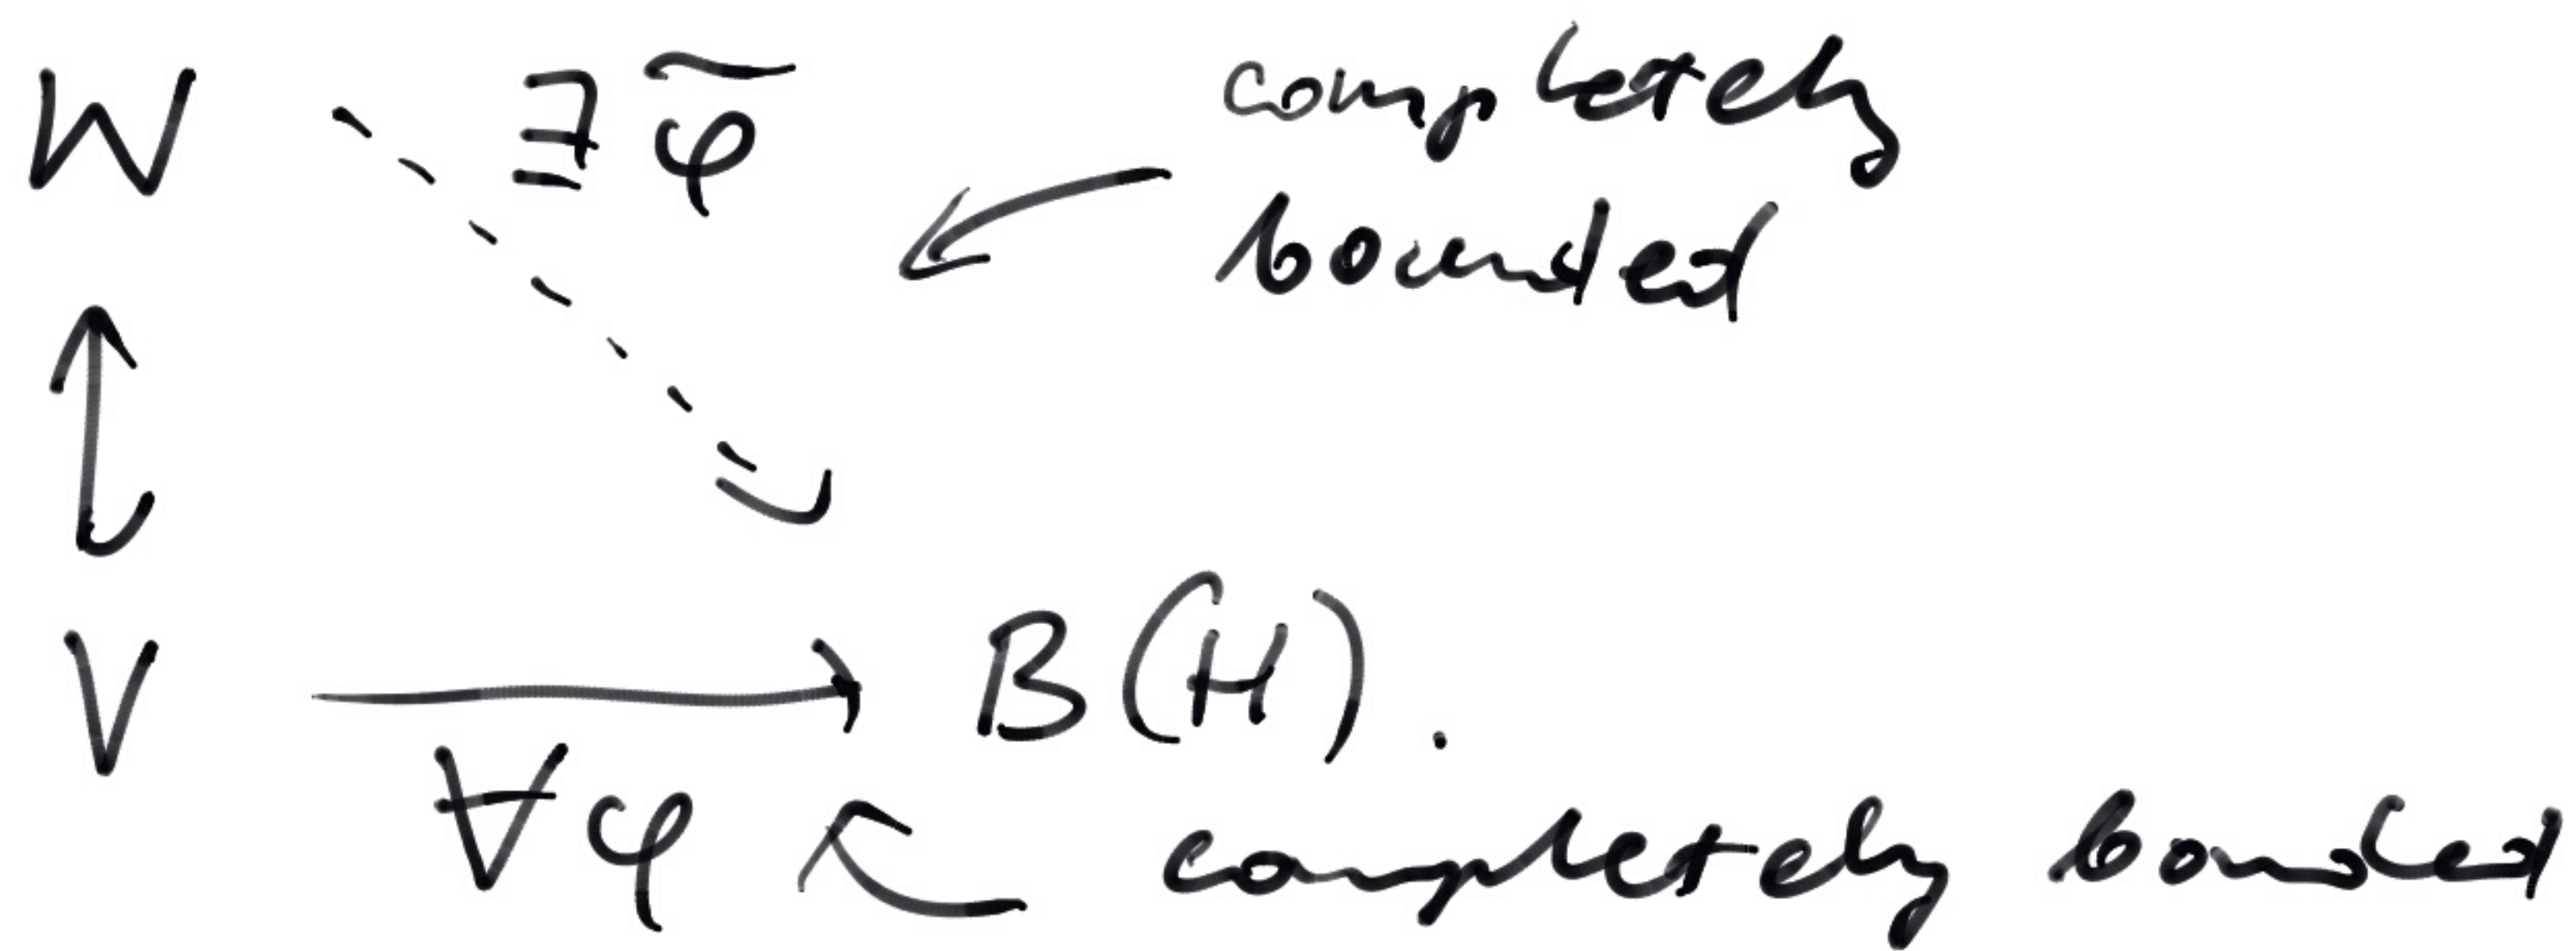 W ∃ φ̃ completely
bounded
V → B(H).
∀φ completely bounded